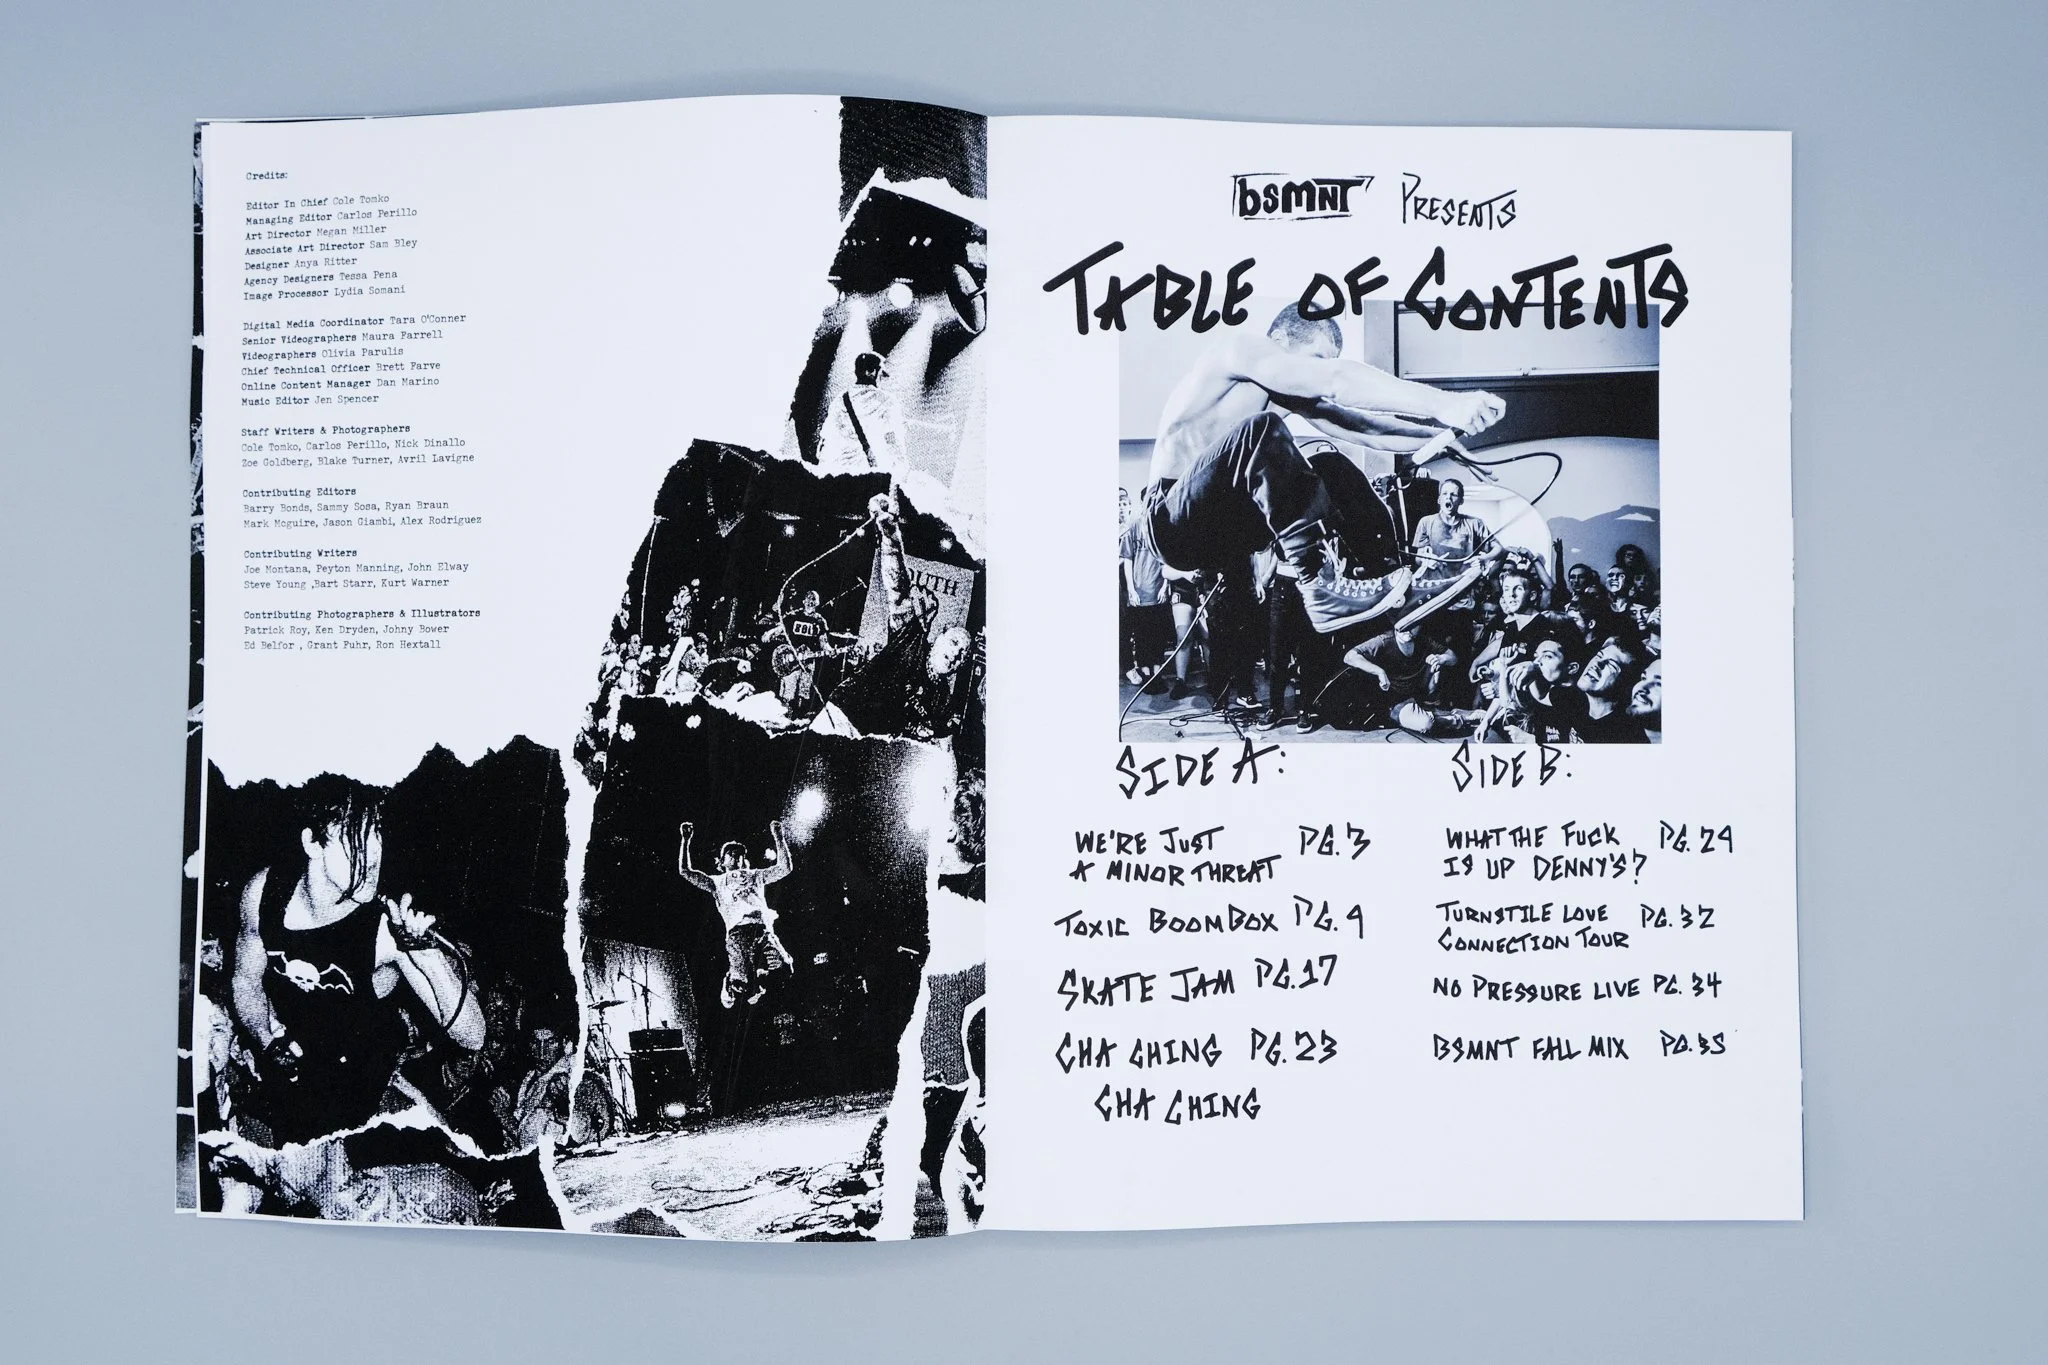 Credits:
Editor In Chief Cole Tomko
Managing Editor Carlos Perillo
Art Director Megan Miller
Associate Art Director Sam Bley
Designer Anya Ritter
Agency Designers Tessa Pena
Image Processor Lydia Somani
Digital Media Coordinator Tara O'Conner
Senior Videographers Maura Farrell
Videographers Olivia Parulis
Chief Technical Officer Brett Farve
Online Content Manager Dan Marino
Music Editor Jen Spencer
Staff Writers & Photographers
Cole Tomko, Carlos Perillo, Nick Dinallo
Zoe Goldberg, Blake Turner, Avril Lavigne
Contributing Editors
Barry Bonds, Sammy Sosa, Ryan Braun
Mark Mcguire, Jason Giambi, Alex Rodriguez
Contributing Writers
Joe Montana, Peyton Manning, John Elway
Steve Young ,Bart Starr, Kurt Warner
Contributing Photographers & Illustrators
Patrick Roy, Ken Dryden, Johny Bower
Ed Belfor , Grant Fuhr, Ron Hextall
OUTH
bsmnt PRESENTS
TABLE OF CONTENTS
SIDE A:
WE'RE JUST PG. 3
A MINOR THREAT
TOXIC BOOMBOX PG. 9
SKATE JAM PG. 17
CHA CHING PG. 23
CHA CHING
SIDE B:
WHAT THE FUCK PG. 29
IS UP DENNY'S?
TURNSTILE LOVE PG. 32
CONNECTION TOUR
NO PRESSURE LIVE PG. 34
BSMNT FALL MIX PG. 35